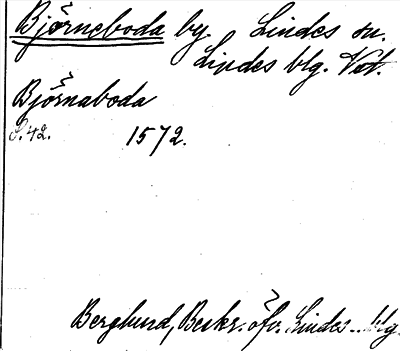 Björneboda by Lindes sn.
Lindes blg. Vst.
Björnaboda
S. 42. 1572.
Berglund, Beskr. öfv. Lindes blg.